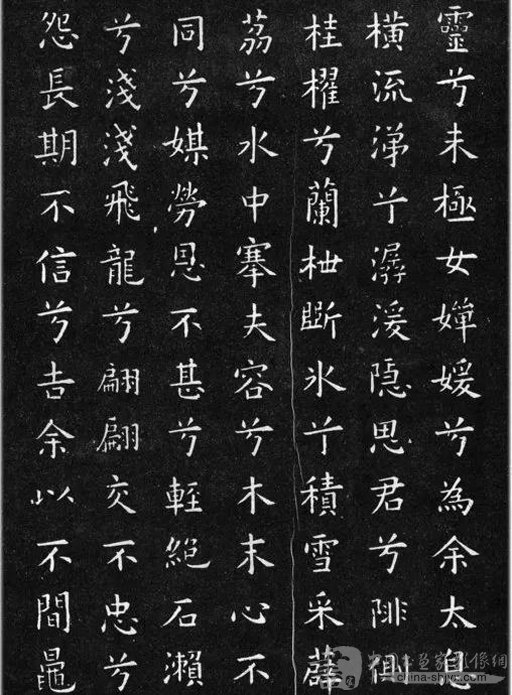 靈兮未極女嬋媛兮為余太息
橫流涕兮潺湲隱思君兮陫側
桂櫂兮蘭枻斲氷兮積雪采薜
荔兮水中搴夫容兮木末心不
同兮媒勞恩不甚兮輕絕石瀨
兮淺淺飛龍兮翩翩交不忠兮
怨長期不信兮告余以不閒鼂
china-shj.com